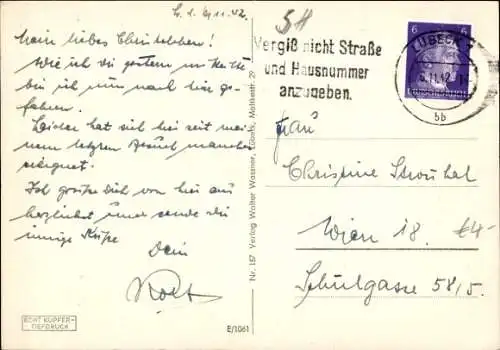 L. d. 9.11.42.
Mein liebes Christelchen!
Wie ich dir gestern mitteilte
bin ich nun nach hier ge-
fahren.
Leider hat sich hier seit mei-
nem letzten Besuch manches
ereignet.
Ich grüße Dich von hier aus
herzlichst und sende dir
innige Küsse
Dein
ECHT KUPFER-
TIEFDRUCK
Nr. 187 Verlag Walter Wassner, Lübeck, 29
E/1061
Vergiß nicht Straße
und Hausnummer
anzugeben.
LÜBECK
.11.42
bb
6 6
Frau
Christine
Wien 18. €4-
Schulgasse 58/5.